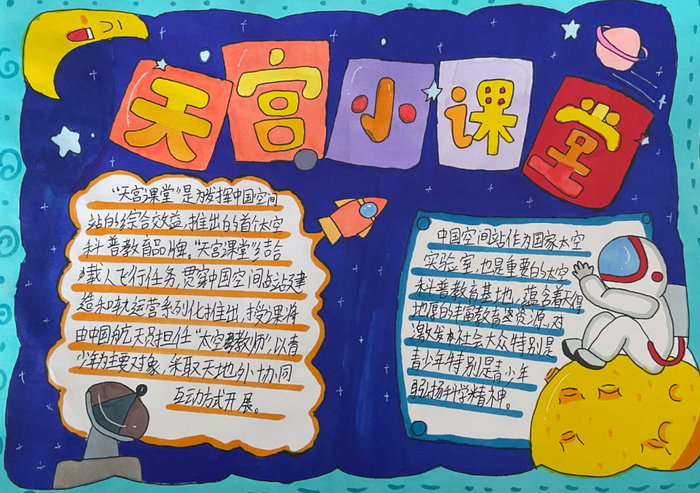 天宫小课堂
“天宫课堂”是为发挥中国空间
站的综合效益,推出的首个太空
科普教育品牌。“天宫课堂”结合
载人飞行任务,贯穿中国空间站建
造和在轨运营系列化推出,授课将
由中国航天员担任“太空教师”,以青
少年为主要对象,采取天地协同
互动方式开展。
中国空间站作为国家太空
实验室,也是重要的太空
科普教育基地,蕴含着
地厚的丰富教育资源,对
激发社会大众特别是
青少年特别是青少年
弘扬科学精神。